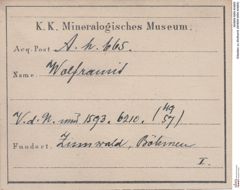 K. K. Mineralogisches Museum.
Acq. Post A. h. 665.
Name Wolframit
V. d. N. 1593. 6210. (49/57)
Fundort. Zinnwald, Böhmen
I.